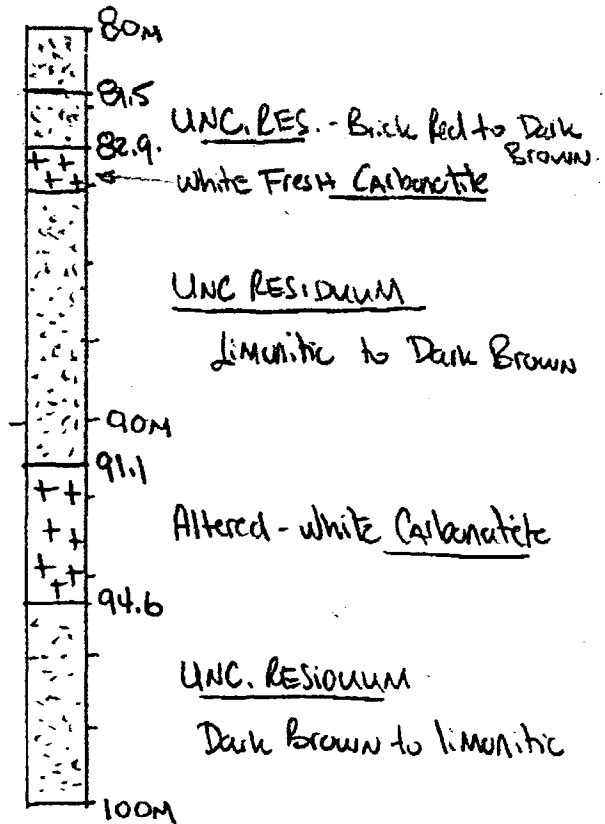 80M
81.5
UNC. RES. - Brick Red to Dark
Brown
82.9.
White Fresh Carbonatite
UNC RESIDUUM
Limonitic to Dark Brown
90M
91.1
Altered - White Carbonatite
94.6
UNC. RESIDUUM
Dark Brown to limonitic
100M